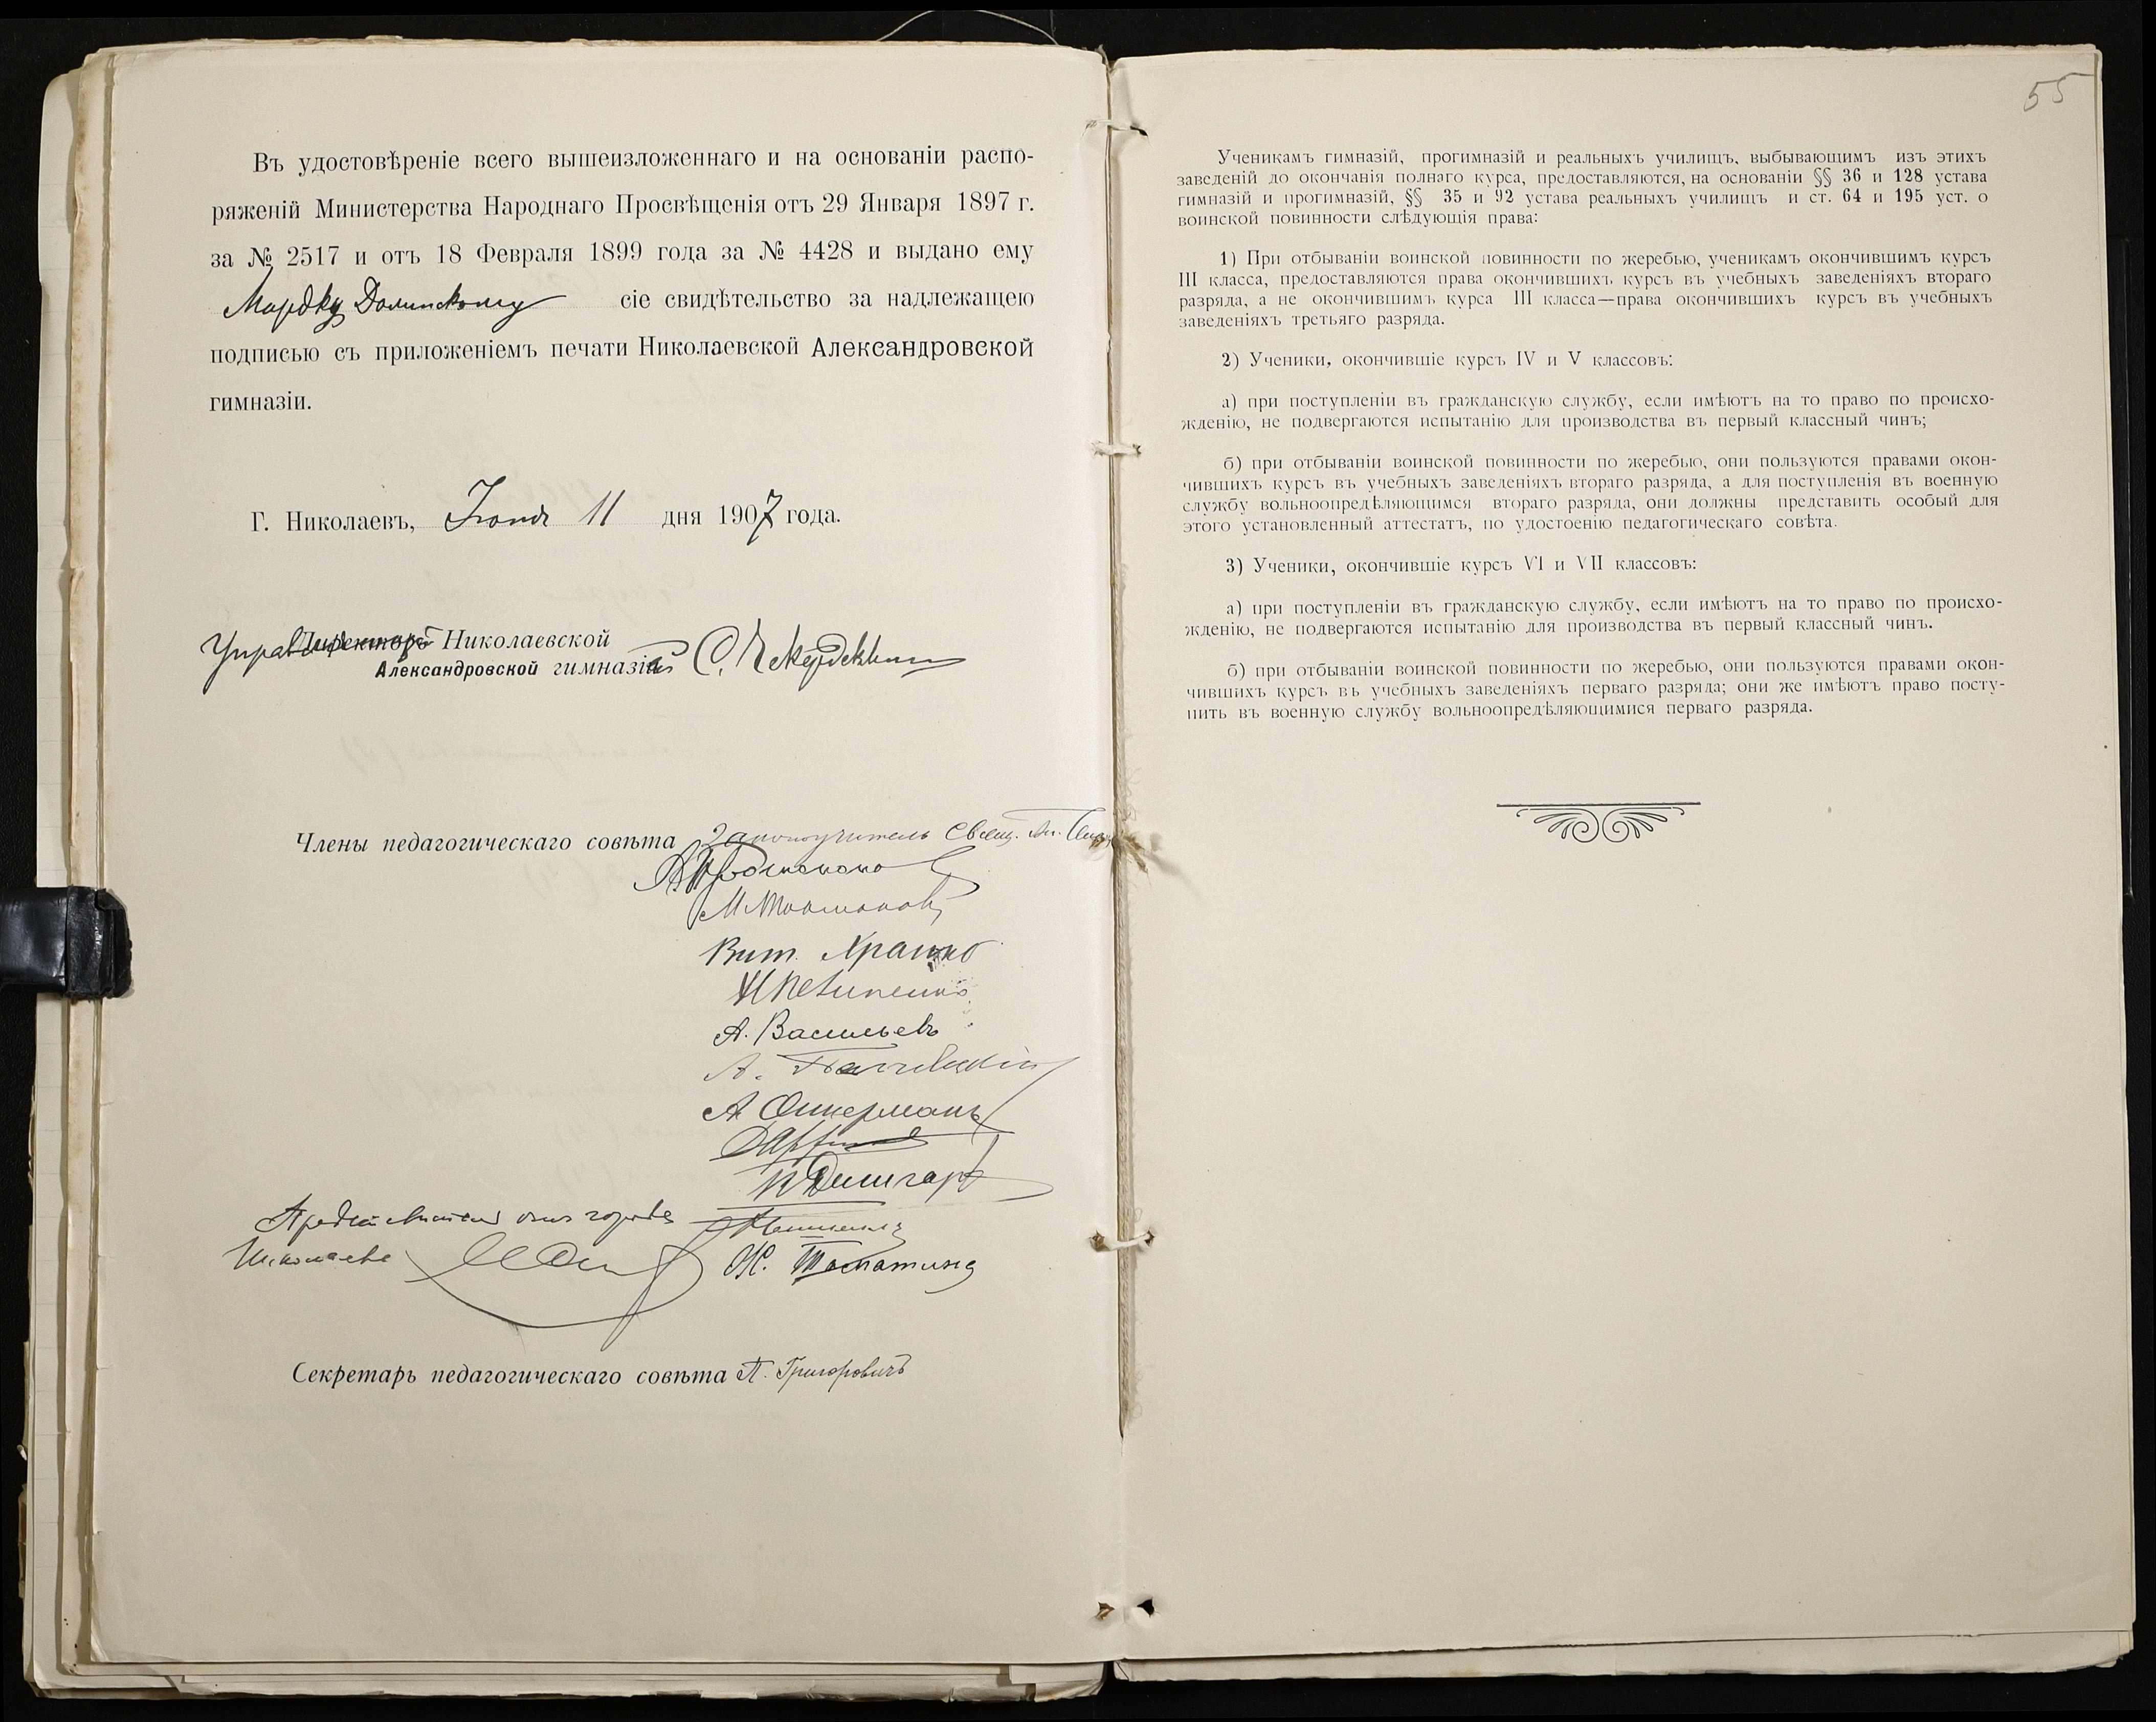 Въ удостовѣреніе всего вышеизложеннаго и на основаніи распо-
ряженій Министерства Народнаго Просвѣщенія отъ 29 Января 1897 г.
за № 2517 и отъ 18 Февраля 1899 года за № 4428 и выдано ему
Мордку Долинскому сіе свидѣтельство за надлежащею
подписью съ приложеніемъ печати Николаевской Александровской
гимназіи.
Г. Николаевъ, Іюня 11 дня 1907 года.
Директоръ Николаевской
Александровской гимназіи
Члены педагогическаго совѣта Законоучитель Свящ.
Вит.
А. Васильевъ
А.
А
Представитель отъ города
Николаева
Секретарь педагогическаго совѣта П. Григоровичъ
55
Ученикамъ гимназій, прогимназій и реальныхъ училищъ, выбывающимъ изъ этихъ
заведеній до окончанія полнаго курса, предоставляются, на основаніи §§ 36 и 128 устава
гимназій и прогимназій, §§ 35 и 92 устава реальныхъ училищъ и ст. 64 и 195 уст. о
воинской повинности слѣдующія права:
1) При отбываніи воинской повинности по жеребью, ученикамъ окончившимъ курсъ
III класса, предоставляются права окончившихъ курсъ въ учебныхъ заведеніяхъ втораго
разряда, а не окончившимъ курса III класса—права окончившихъ курсъ въ учебныхъ
заведеніяхъ третьяго разряда.
2) Ученики, окончившіе курсъ IV и V классовъ:
а) при поступленіи въ гражданскую службу, если имѣютъ на то право по происхо-
жденію, не подвергаются испытанію для производства въ первый классный чинъ;
б) при отбываніи воинской повинности по жеребью, они пользуются правами окон-
чившихъ курсъ въ учебныхъ заведеніяхъ втораго разряда, а для поступленія въ военную
службу вольноопредѣляющимся втораго разряда, они должны представить особый для
этого установленный аттестатъ, по удостоенію педагогическаго совѣта.
3) Ученики, окончившіе курсъ VI и VII классовъ:
а) при поступленіи въ гражданскую службу, если имѣютъ на то право по происхо-
жденію, не подвергаются испытанію для производства въ первый классный чинъ.
б) при отбываніи воинской повинности по жеребью, они пользуются правами окон-
чившихъ курсъ въ учебныхъ заведеніяхъ перваго разряда; они же имѣютъ право посту-
пить въ военную службу вольноопредѣляющимися перваго разряда.